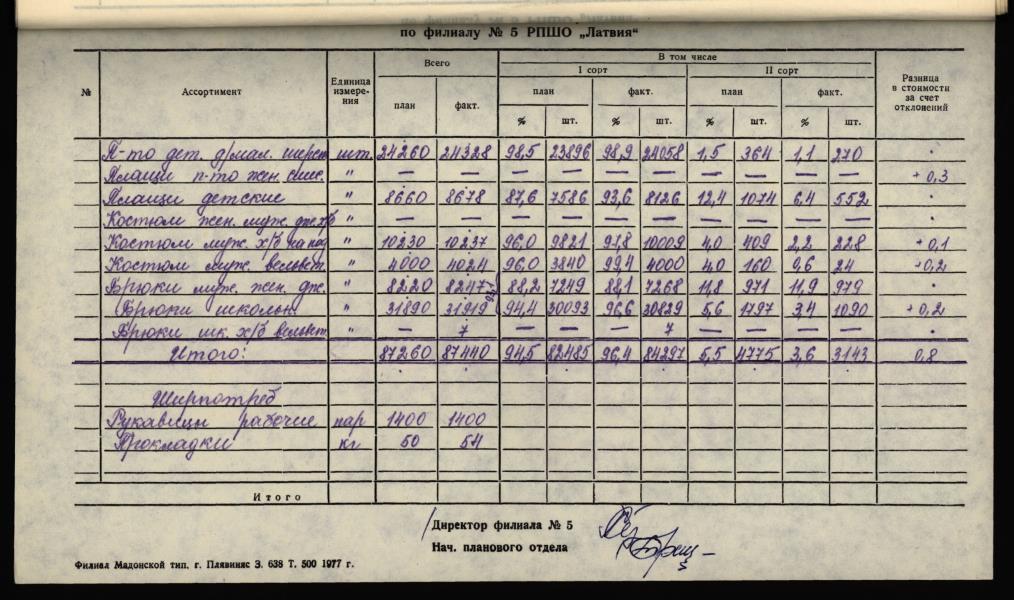 по филиалу № 5 РПШО „Латвия“
№ Ассортимент Единица измере- ния Всего В том числе Разница в стоимости за счет отклонений
I сорт II сорт
план факт. план факт. план факт.
% шт. % шт. % шт. % шт.
П-то дет. д/мал. шерст шт. 24260 24328 98,5 23896 98,9 24058 1,5 364 1,1 270
Плащи п-то жен. смес. " — — — — — — — — — — + 0,3
Плащи детские " 8660 8678 87,6 7586 93,6 8126 12,4 1074 6,4 552
Костюм жен. муж. дж. х/б " — — — — — — — — — —
Костюм муж. х/б на под " 10230 10237 96,0 9821 97,8 10009 4,0 409 2,2 228 + 0,1
Костюм муж. вельвет. " 4000 4024 96,0 3840 99,4 4000 4,0 160 0,6 24 +0,2
Брюки муж. жен. дж. " 8220 8247 88,2 7249 88,1 7268 11,8 971 11,9 979
Брюки школьн. " 31890 31919 94,4 30093 96,6 30829 5,6 1797 3,4 1090 + 0,2
Брюки шк. х/б вельвет. " — 7 — — — 7 — — — —
Итого: 87260 87440 94,5 82485 96,4 84297 5,5 4775 3,6 3143 0,8
Ширпотреб
Рукавицы рабочие пар 1400 1400
Прокладки кг 50 54
Итого
Директор филиала № 5
Нач. планового отдела
Филиал Мадонской тип. г. Плявиняс З. 638 Т. 500 1977 г.